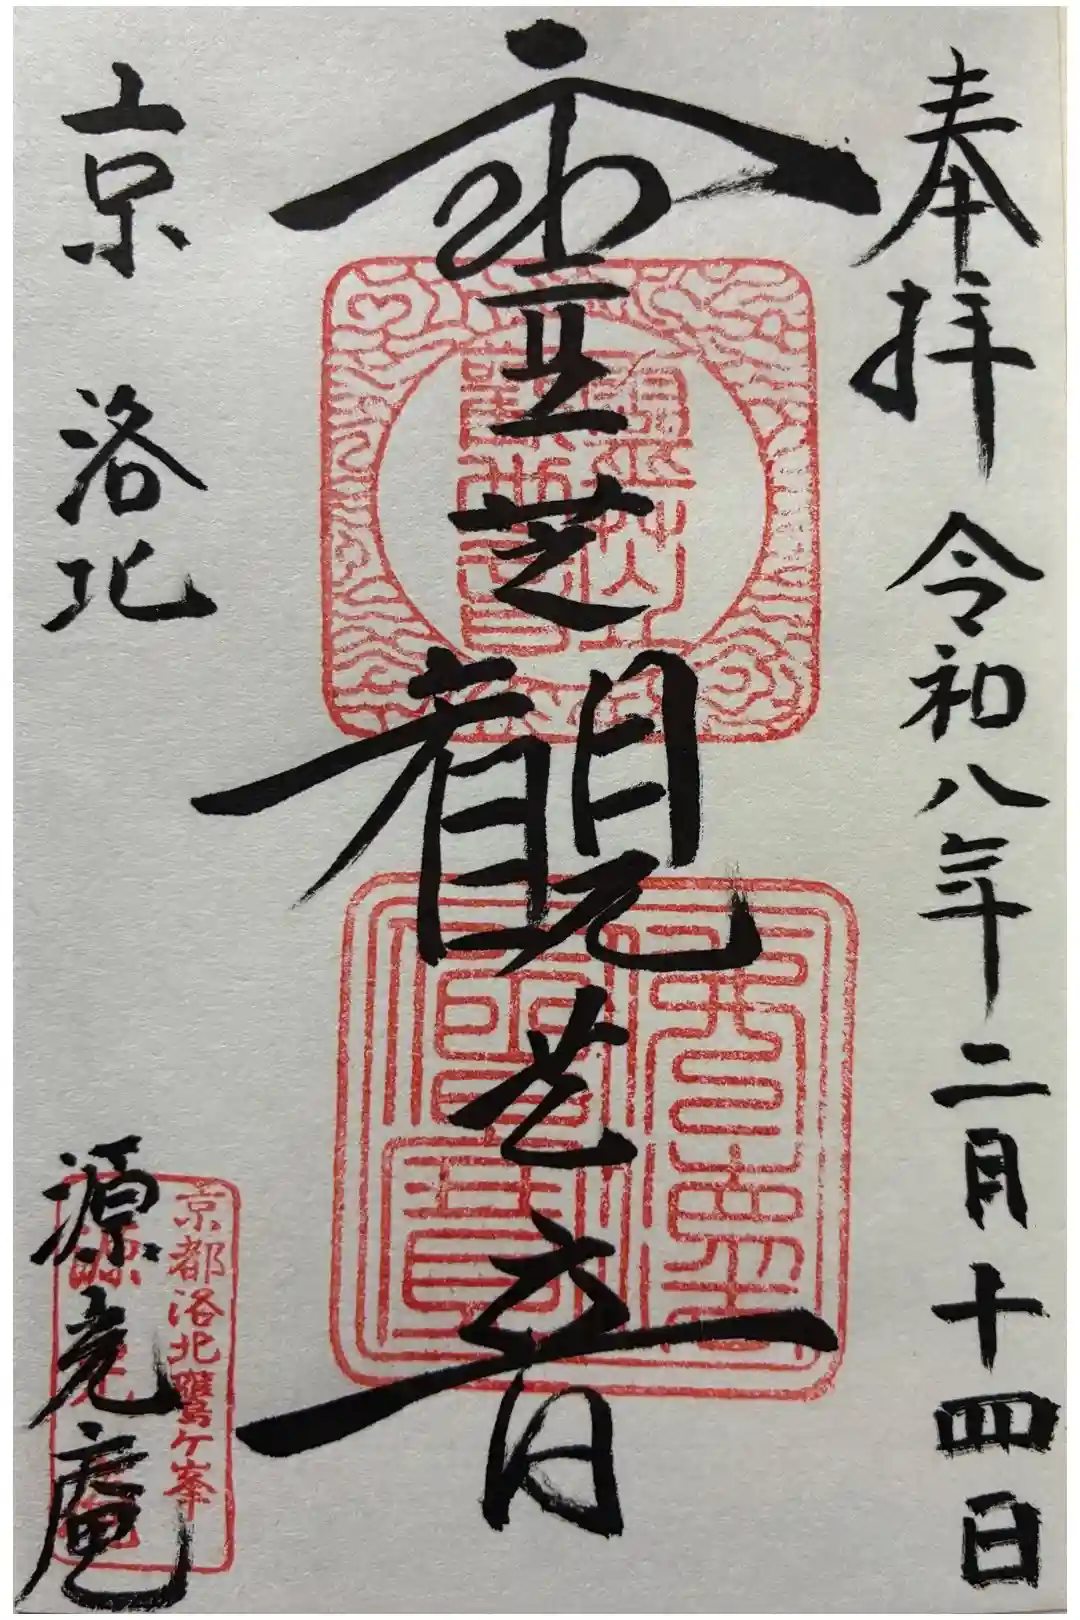 奉拝 令和八年二月十四日
霊芝観世音
京 洛北 源光庵
京都洛北鷹ケ峯